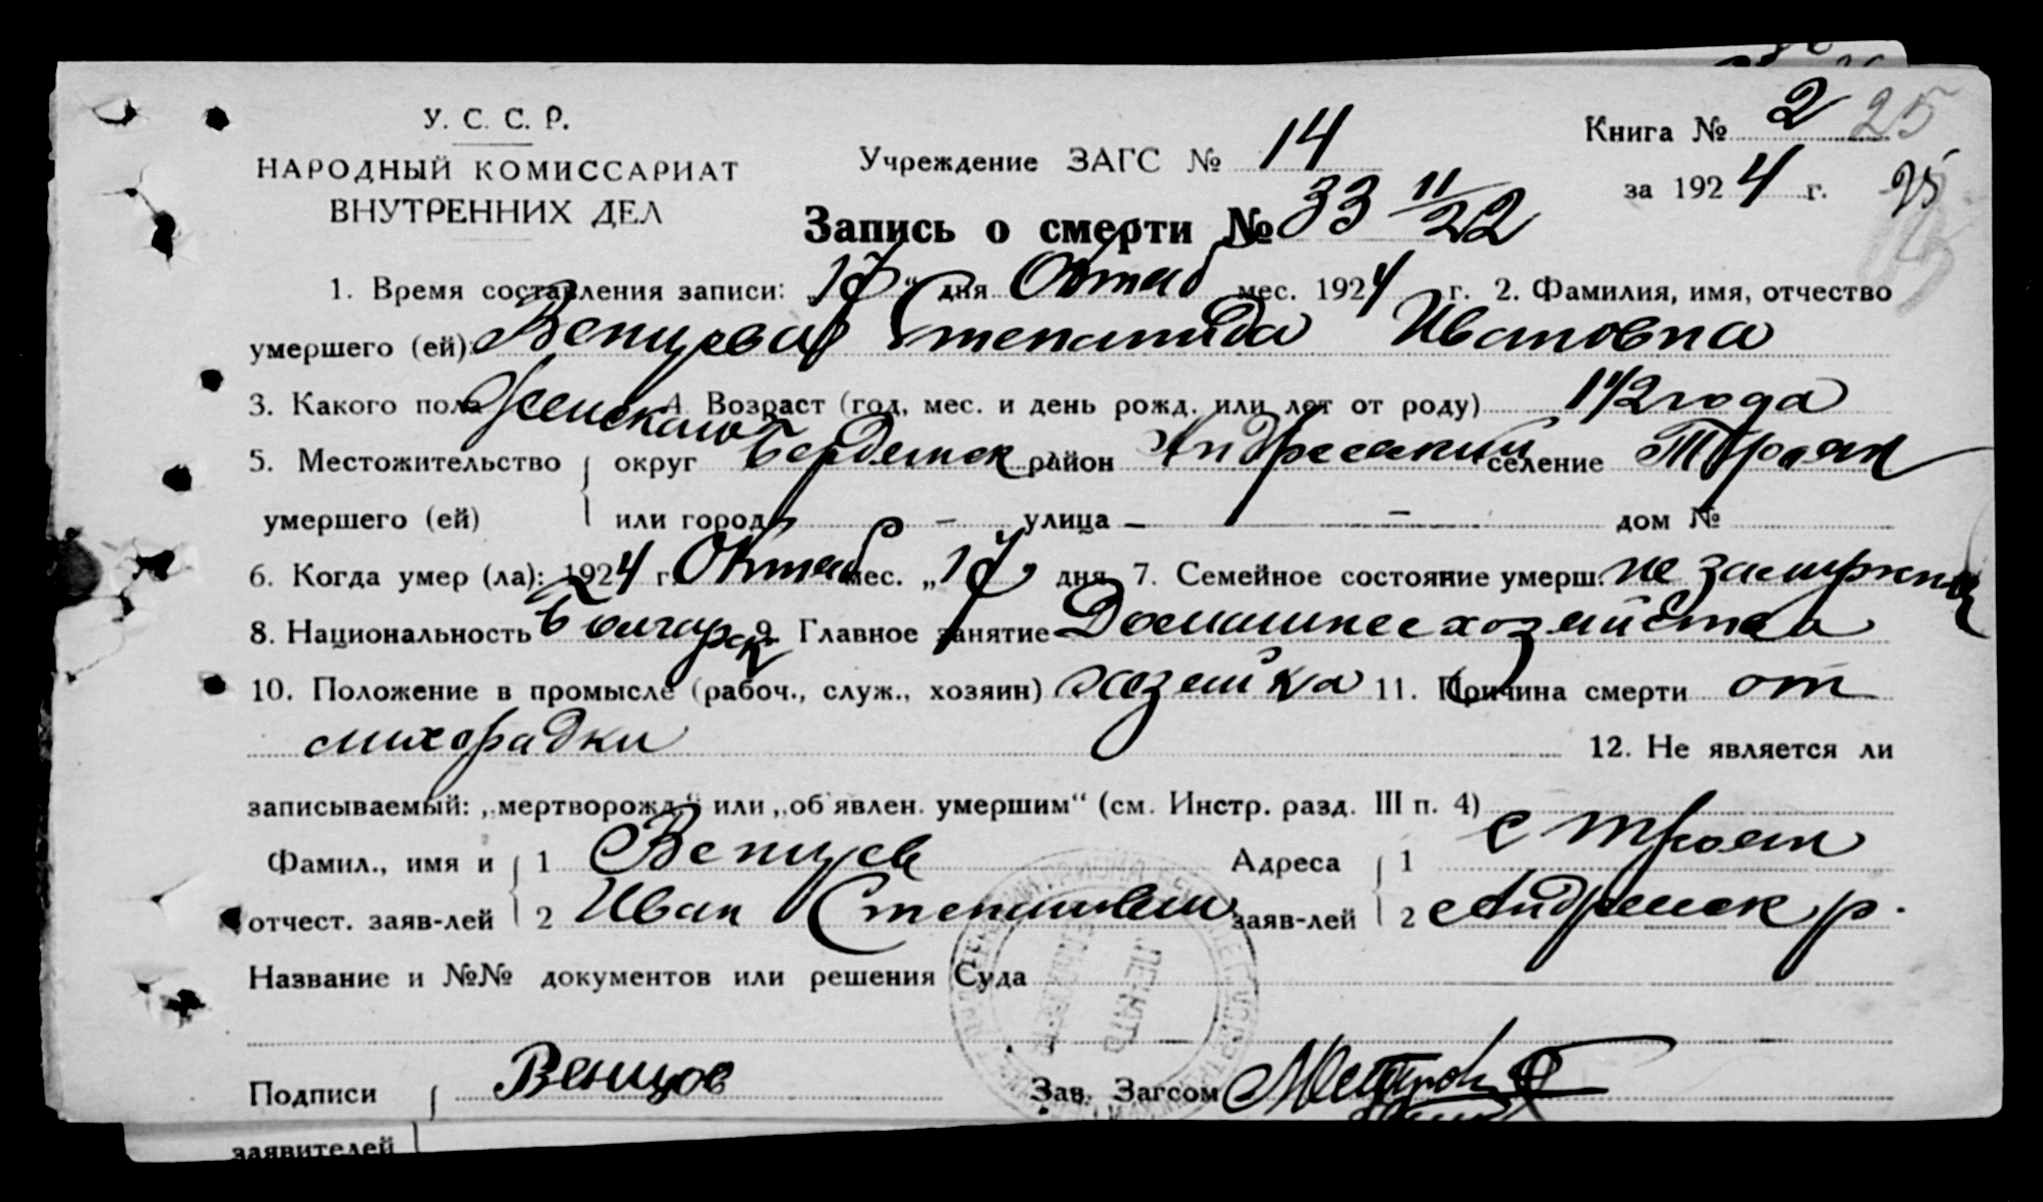 У. С. С. Р.
НАРОДНЫЙ КОМИССАРИАТ
ВНУТРЕННИХ ДЕЛ
Учреждение ЗАГС № 14
Книга № 2 25
за 1924 г. 25
Запись о смерти № 33 11/22
1. Время составления записи: „17“ дня Октяб мес. 1924 г. 2. Фамилия, имя, отчество
умершего (ей): Венцева Степанида Ивановна
3. Какого пола женского 4. Возраст (год, мес. и день рожд. или лет от роду) 1 1/2 года
5. Местожительство округ Бердянск район Андреевский селение Троян
умершего (ей) или город — улица — — дом №
6. Когда умер (ла): 1924 г. Октяб мес. „17 дня 7. Семейное состояние умерш. не замужняя
8. Национальность Болгарк 9. Главное занятие Домашнее хозяйства
10. Положение в промысле (рабоч., служ., хозяин) хозяйка 11. Причина смерти от
лихорадки
12. Не является ли
записываемый: „мертворожд.“ или „об'явлен. умершим“ (см. Инстр. разд. III п. 4)
Фамил., имя и 1 Венцев Адреса 1 с Троян
отчест. заяв-лей 2 Иван Степанович заяв-лей 2 Андреевск р.
Название и №№ документов или решения Суда
Подписи Венцов Зав. Загсом
заявителей